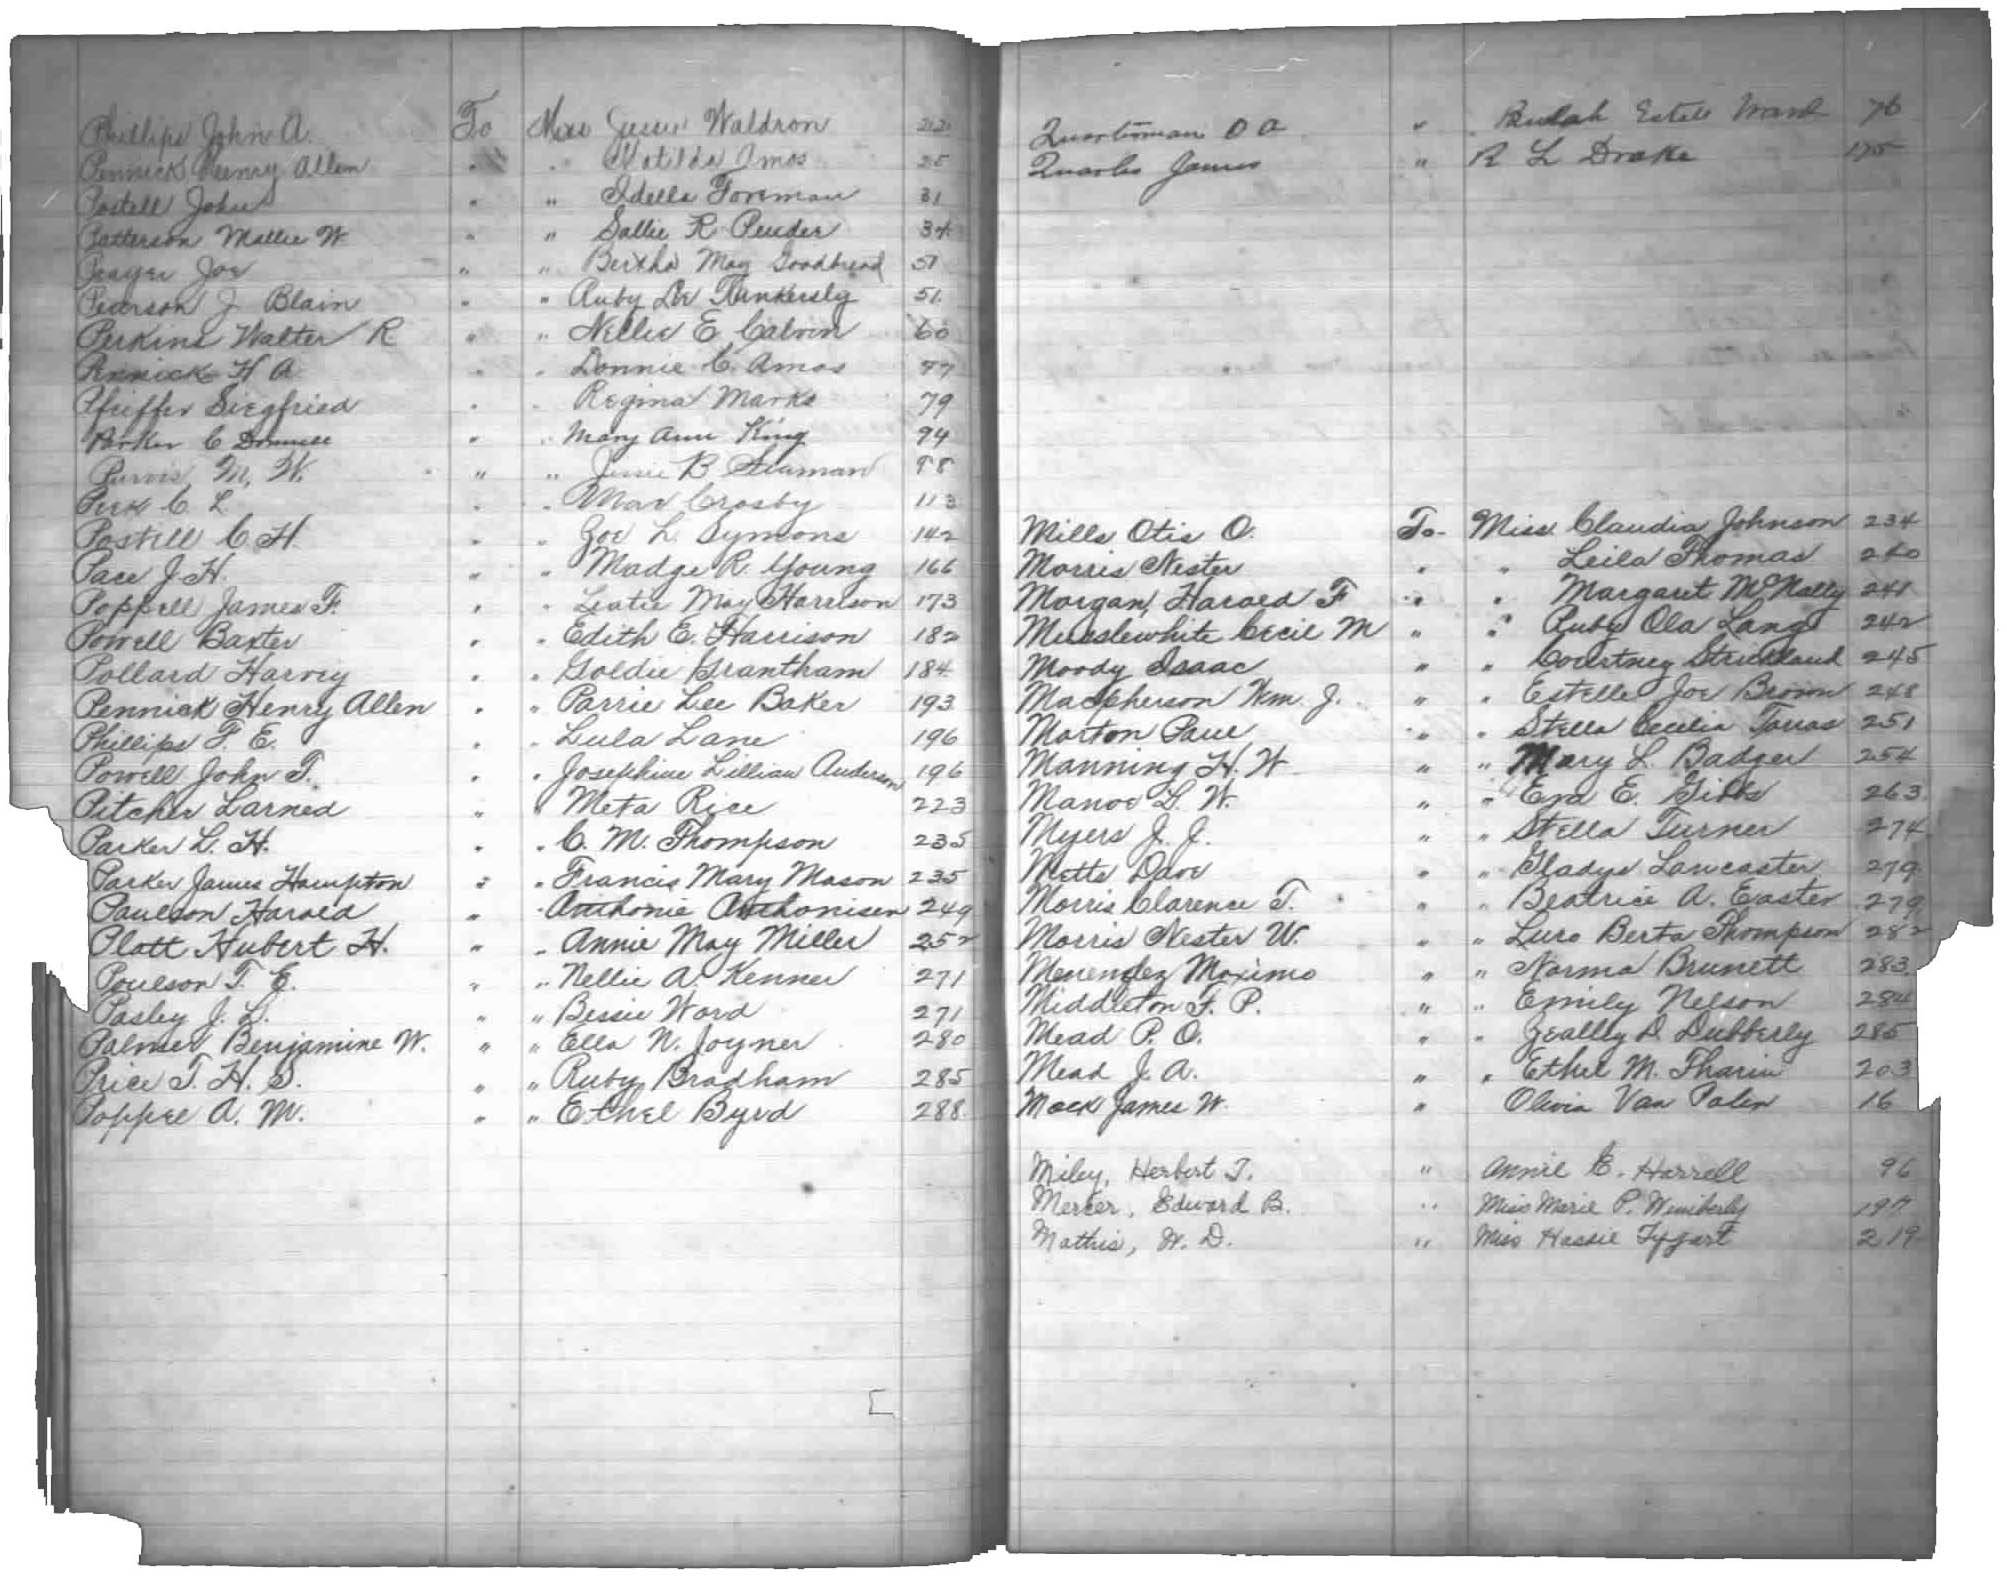 Phillips John A. To Miss Jessie Waldron 22
Pennick Henry Allen " " Clotilda Amos 25
Postell John " " Idella Foreman 31
Patterson Mallie W. " " Sallie R Pender 34
Prayer Joe " " Bertha May Goodbread 51
Pearson J Blain " " Ruby Lee Tankersly 51
Perkins Walter R " " Nellie E Calvin 60
Pennick H A " " Donnie C. Amos 77
Pfeiffer Siegfried " " Regina Marks 79
Parker C " " Mary Ann King 94
Purvis, M, W. " " Jessie B Seaman 98
Peek C L " " Mae Crosby 113
Postell C H. " " Zoe L. Symons 142
Pace J. H. " " Madge R. Young 166
Poppell James F. " " Leatie May Harrison 173
Powell Baxter " " Edith E. Harrison 182
Pollard Harvey " " Goldie Grantham 184
Pennick Henry Allen " " Parrie Lee Baker 193
Phillips F. E. " " Lula Lane 196
Powell John T. " " Josephine Lillian Anderson 196
Pitcher Larned " " Meta Rice 223
Parker L. H. " " C. M. Thompson 235
Parker James Hampton " " Francis Mary Mason 235
Paulson Harold " " Anthonie Anthonisen 249
Platt Hubert H. " " Annie May Miller 252
Poulson T. E. " " Nellie A. Kenner 271
Pasley J. L. " " Bessie Ward 271
Palmer Benjamine W. " " Ella N. Joyner 280
Price T. H. S. " " Ruby Bradham 285
Poppel A. M. " " Ethel Byrd 288
Quarterman O A " Beulah Estell Ward 76
Quarles James " R L Drake 175
Mills Otis O. To Miss Claudia Johnson 234
Morris Nester " " Leila Thomas 240
Morgan, Harold F " " Margaret McNally 241
Musslewhite Cecil M " " Ruby Ola Lang 242
Moody Isaac " " Courtney Strickland 245
MacPherson Wm. J. " " Estelle Joe Brown 248
Morton Paul " " Stella Cecilia Torras 251
Manning H. W " " Mary L. Badger 254
Manoe L. W. " " Era E. Gibbs 263
Myers J. J. " " Stella Turner 274
Metts Dave " " Gladys Lancaster 279
Morris Clarence T. " " Beatrice A. Easter 279
Morris Nester W. " " Lura Berta Thompson 282
Menendez Maximo " " Norma Brunett 283
Middleton F. P. " " Emily Nelson 284
Mead P. O. " " Zealley D. Dubberly 285
Mead J. A. " " Ethel M. Tharin 203
Mock James W. " Olivia Van Palen 16
Miley, Herbert T. " Annie E. Harrell 96
Mercer, Edward B. " Miss Marie P. Wimberly 197
Mathis, W. D. " Miss Hassie Tygart 219